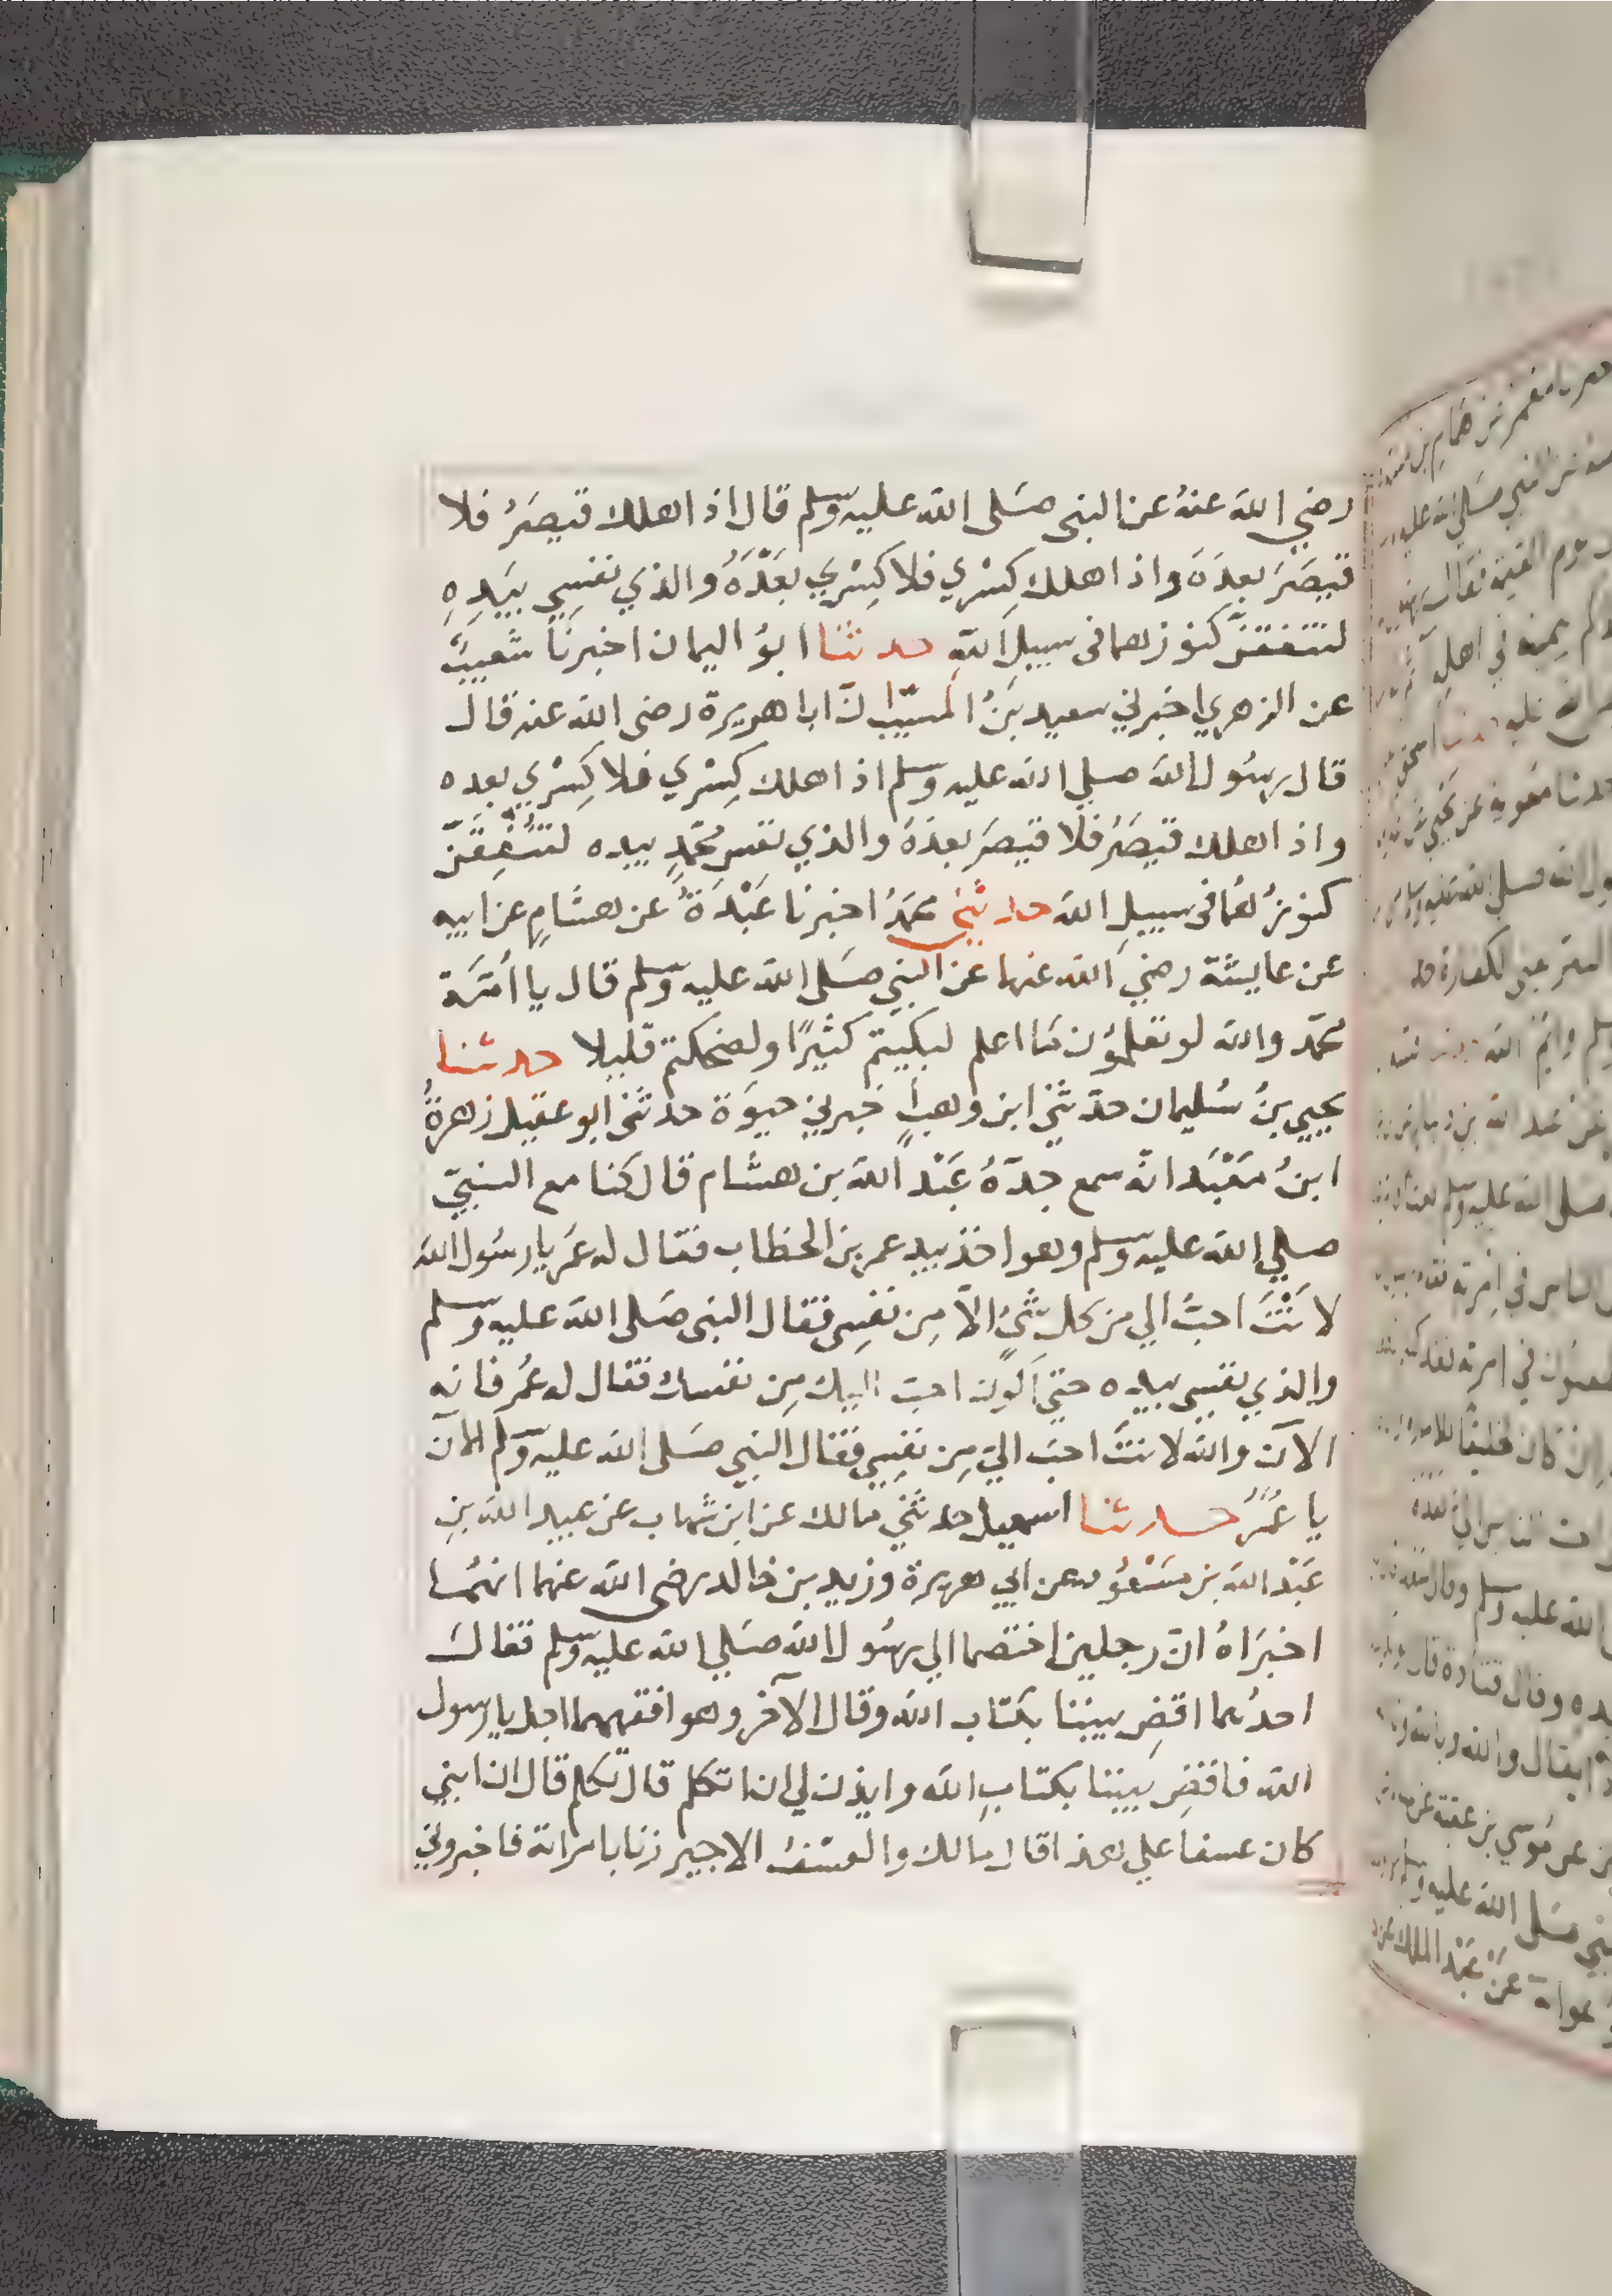 رضي الله عنهُ عن النبى صَلى الله عليه وسلم قال اذا هلك قيصَرُ فلا
قيصَرَ بعدَهَ واذا هلك كِسْري فلا كِسْري بَعدَهُ والذي نفسِي بيَدِهِ
لتنفقنّ كنوزهما فى سبيلِ اللهِ حدثنا ابوُ اليمان اخبرنا شعيبٌ
عن الزهري اخبرني سعيد بنُ المسيّب انّ ابا هريرة رضى الله عنه قال
قال رسُول الله صلي الله عليه وسلم اذا هلك كِسْري فلا كِسْري بعده
واذا هلك قيصَرُ فلا قيصرَ بعدَهُ والذي نفس مُحمّدٍ بيده لتُنْفِقَنّ
كنوزُهُما فى سبيلِ الله حدثنى محمدُ اخبرنا عَبْدَةُ عن هشامٍ عن ابيه
عن عايشة رضي الله عنها عن النبي صَلى الله عليه وسلم قال يا اُمّة
محمّد والله لو تعلموُن مَا اعلم لبكيتم كثيرًا ولضحكتم قليلا حدثنا
يحيي بنُ سُليمان حدّثني ابن وهبٍ اخبرني حيوَة حدثنى ابو عقيل زهرةُ
ابنُ مَعْبَد انه سمع جدّهُ عَبْد الله بن هشام قال كنا مع النبيّ
صلي الله عليه وسلم وهو اخذ بيد عمر بن الخطاب فقال له عمَر يا رسُول الله
لاَنْتَ احبّ الي من كل شيءٍ الاّ مِن نفسِى فقال النبى صَلى الله عليه وسلم
والذي نفسِي بيده حتي اَكونَ احبّ اليك مِن نفسك فقال له عُمر فانه
الآن والله لانتَ احبّ اليّ مِن نفسِي فقال النبي صَلى الله عليه وسلم الآن
يا عُمَرُ حدثنا اسمعيل حدثني مالك عن ابن شهاب عن عبيد الله بنِ
عَبْد الله بن مَسْعُود عن ابي هريرة وزيد بن خالد رضى الله عنهما انهمُا
اخبرَاهُ انّ رجلين اختصما الي رسُول الله صَلي الله عليه وسلم فقالَ
احدُهما اقضِ بيننا بكتاب الله وقال الآخر وهو افقههما اجل يا رسول
الله فاقضِ بيننا بكتابِ الله وايذن لي ان اتكلم قال تكلم قال ان ابني
كان عسفا علي هذا قال مالك والعسْفُ الاجير زنا بامراته فاخبروني